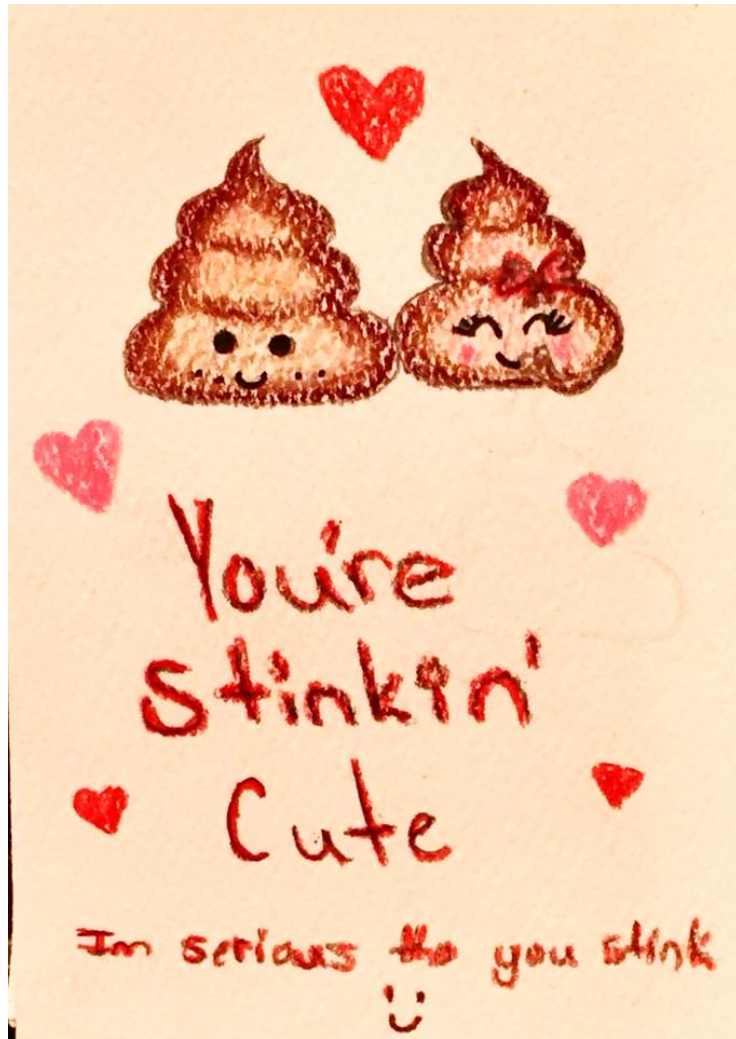 You're
Stinkin'
Cute
Im serious tho you stink